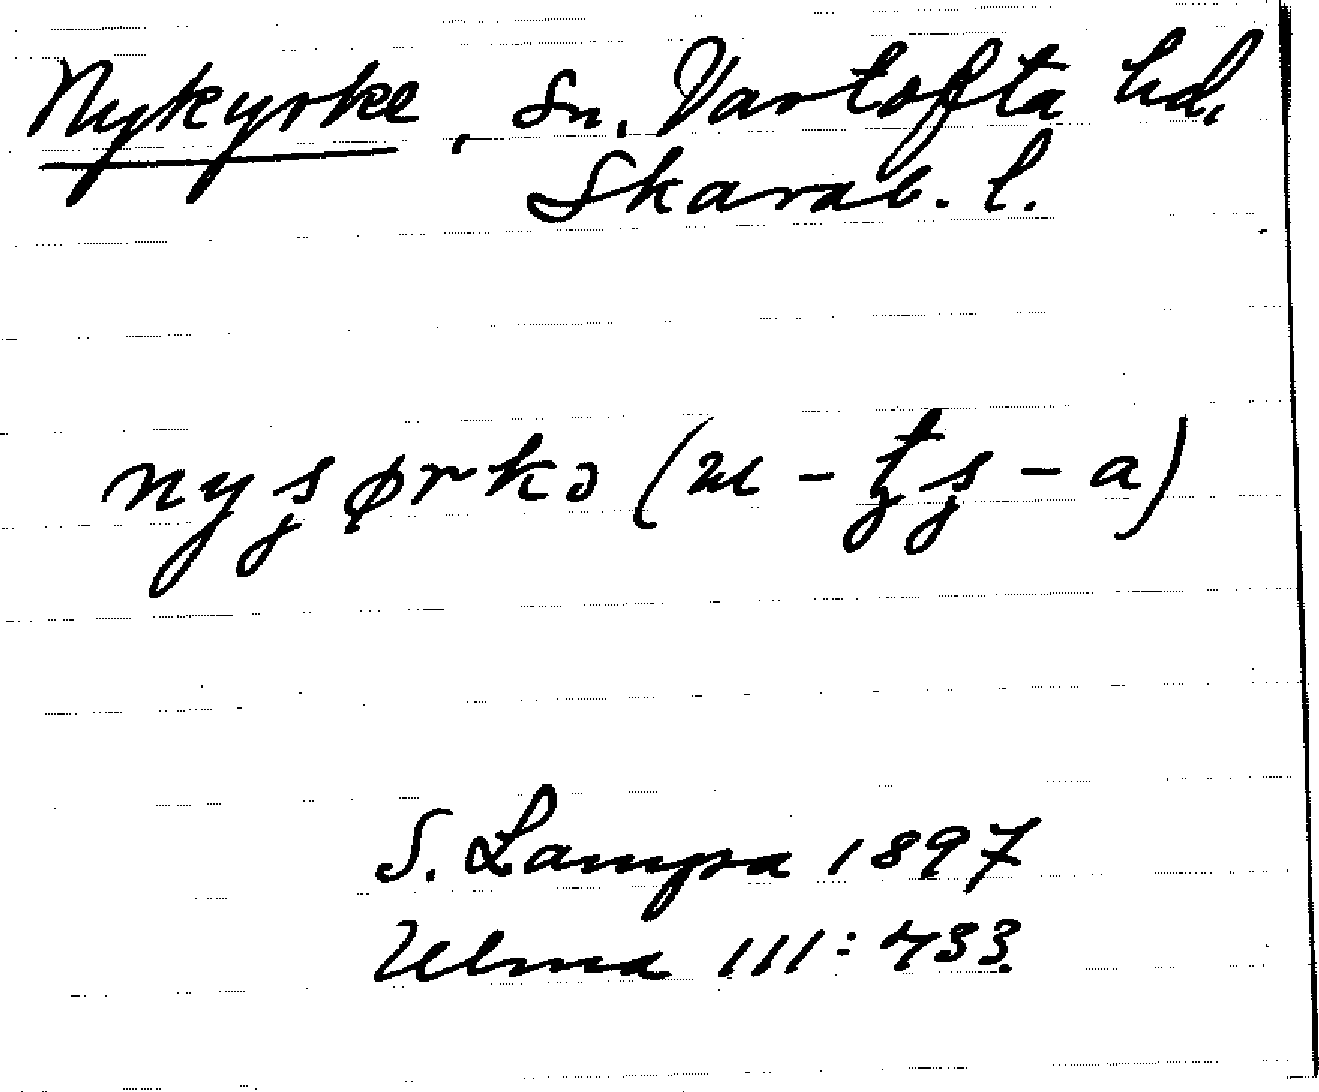 Nykyrke, Sn. Vartofta hd,
Skarab. l.
S. Lampa 1897
Ulma 111: 433.